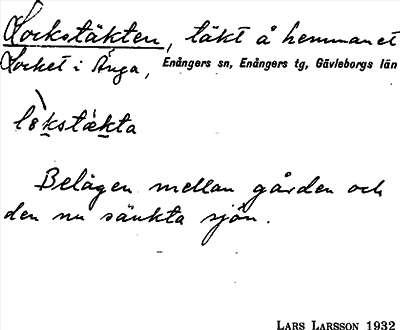 Lockstäkten, täkt å hemmanet
Locket i Ånga, Enångers sn, Enångers tg, Gävleborgs län
lòkstäkta
Belägen mellan gården och
den nu sänkta sjön.
LARS LARSSON 1932